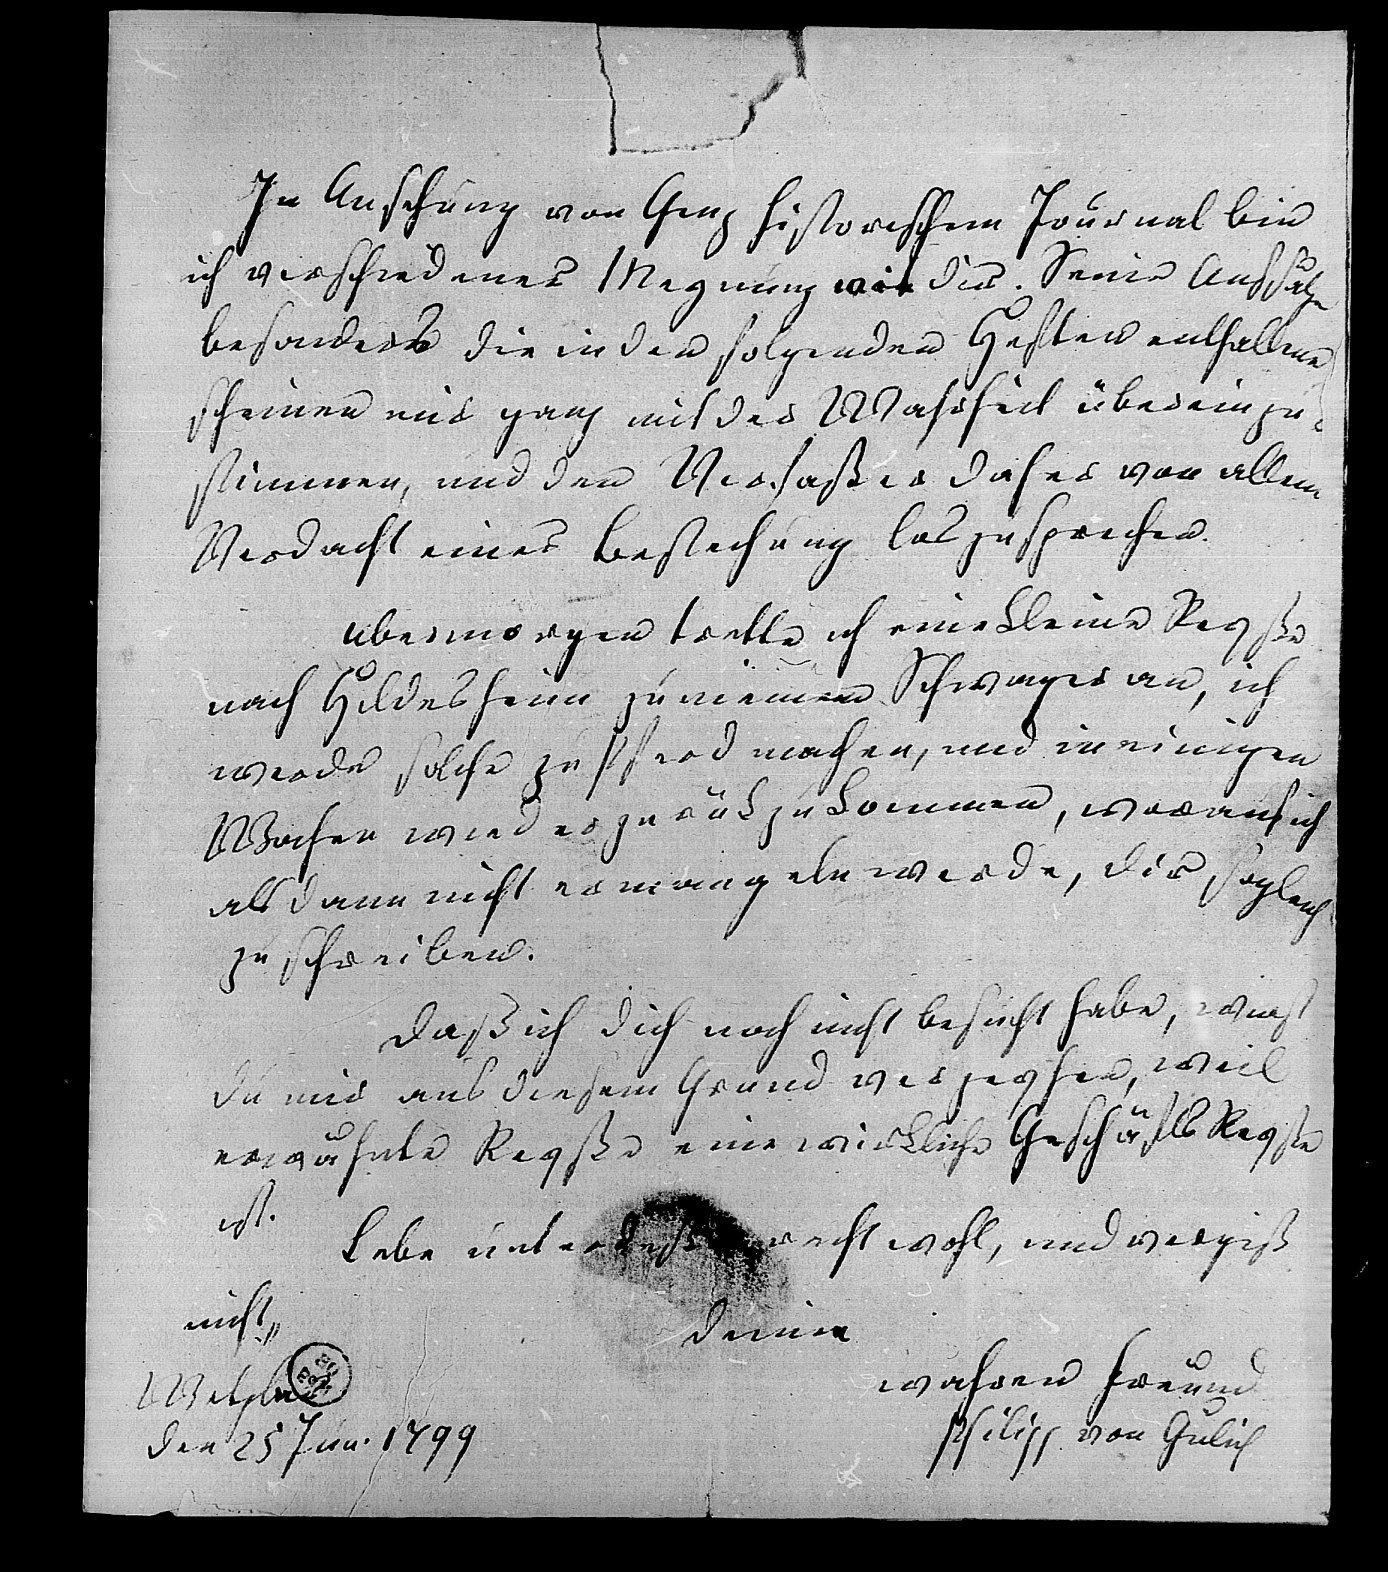 In Ansehung von Genz historischem Journal bin
ich verschiedener Meynung mit dir. Seine Aufsätze
besonders die in den folgenden Heften enthaltene
scheinen mir ganz mit der Wahrheit übereinzu-
stimmen, und den Verfaßer daher von allem
Verdacht einer Bestechung loszusprechen.
übermorgen trette ich eine kleine Reyße
nach Hildesheim zu meinem Schwager an, ich
werde solche zu Pferd machen, und in einigen
Wochen wieder zurükzukommen, woran ich
alsdann nicht ermangeln werde, dir sogleich
zu schreiben.
Daß ich dich noch nicht besucht habe, wirst
du mir aus diesem Grund verzeyhen, weil
erwähnte Reyße eine wirkliche Geschäfts Reyße
ist.
Lebe unterdeßen recht wohl, und vergiß
nicht
deinen
wahren Freund
Philipp von Gülich
Wetzlar
den 25 Jun. 1799